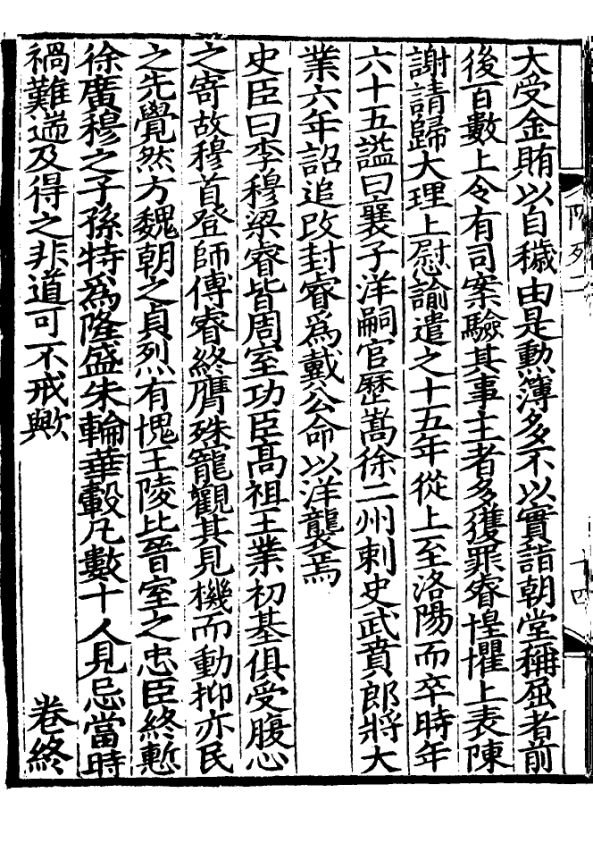 大受金賄以自穢由是勲簿多不以實詣朝堂稱屈者前
後百數上令有司案驗其事主者多獲罪睿惶懼上表陳
謝請歸大理上慰諭遣之十五年從上至洛陽而卒時年
六十五謚曰襄子洋嗣官歷嵩徐二州刺史武賁郎將大
業六年詔追改封睿爲戴公命以洋襲焉
史臣曰李穆梁睿皆周室功臣髙祖王業初基俱受腹心
之寄故穆首登師傅睿終膺殊寵觀其見機而動抑亦民
之先覺然方魏朝之貞烈有愧王陵比晉室之忠臣終慙
徐廣穆之子孫特爲隆盛朱輪華轂凡數十人見忌當時
禍難遄及得之非道可不戒歟
卷終
列
十四